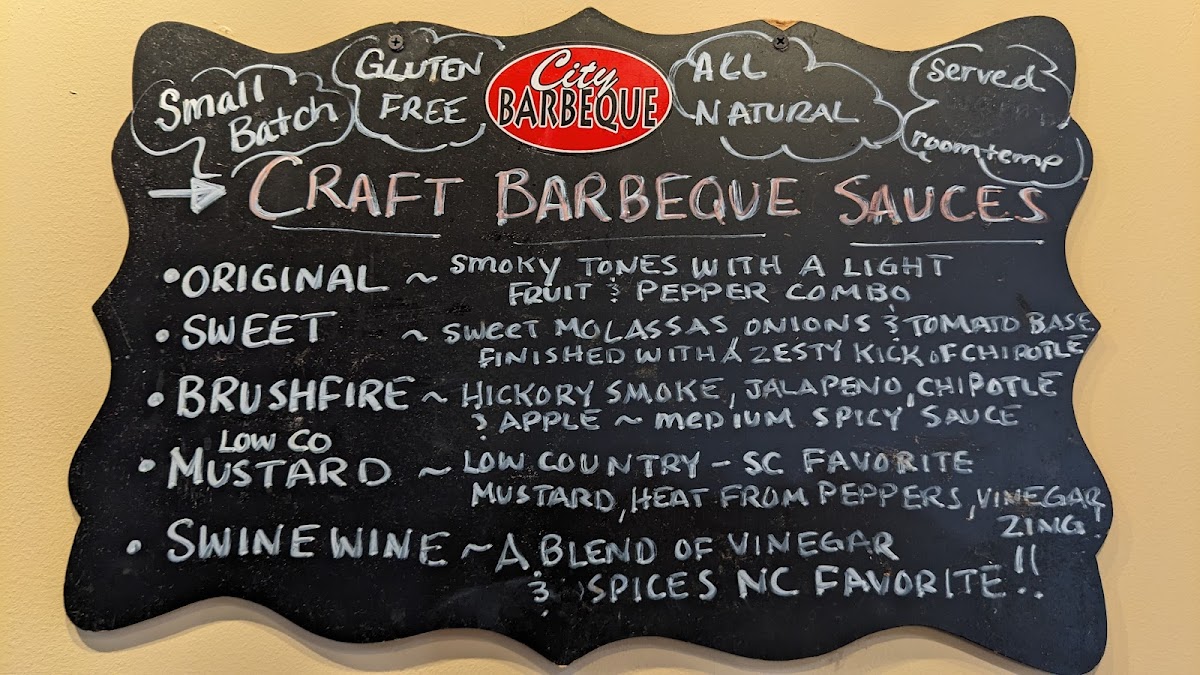 Small Batch
GLUTEN FREE
City BARBEQUE
ALL NATURAL
Served
room temp
CRAFT BARBEQUE SAUCES
• ORIGINAL ~ SMOKY TONES WITH A LIGHT
FRUIT & PEPPER COMBO
• SWEET ~ SWEET MOLASSAS, ONIONS & TOMATO BASE
FINISHED WITH A ZESTY KICK OF CHIPOTLE
• BRUSHFIRE ~ HICKORY SMOKE, JALAPENO, CHIPOTLE
& APPLE ~ MEDIUM SPICY SAUCE
LOW CO
• MUSTARD ~ LOW COUNTRY - SC FAVORITE
MUSTARD, HEAT FROM PEPPERS, VINEGAR
ZING!
• SWINE WINE ~ A BLEND OF VINEGAR
& SPICES NC FAVORITE!!